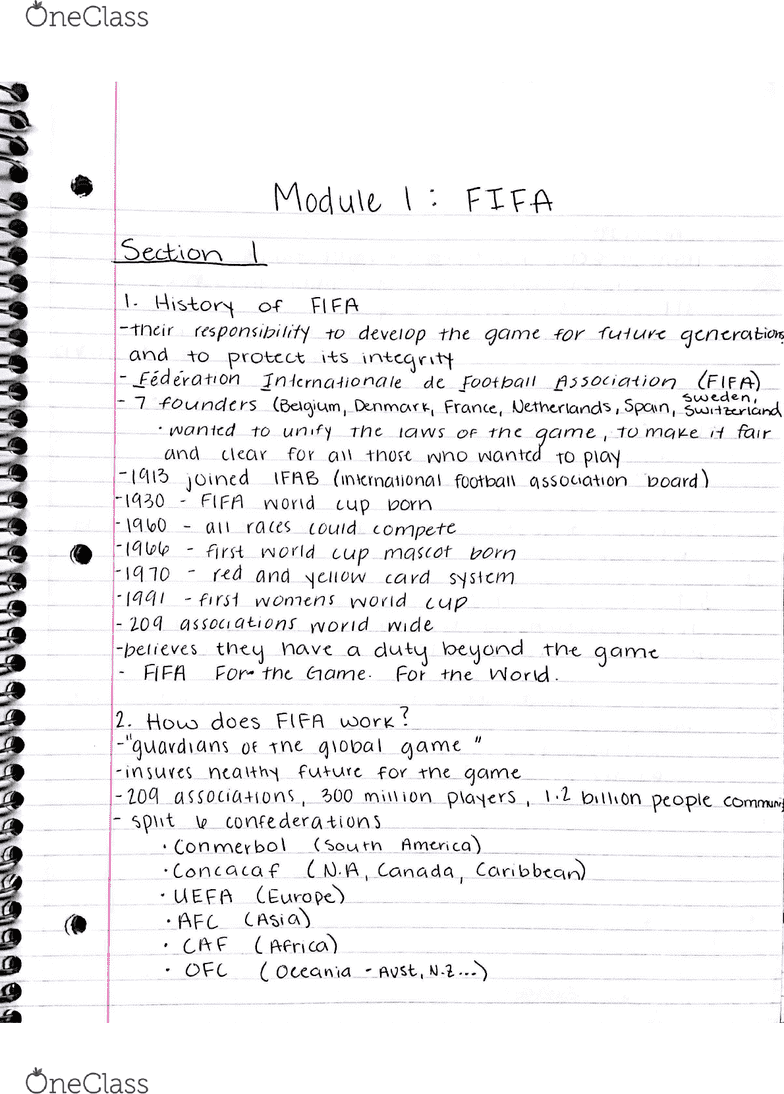 OneClass
Module 1: FIFA
Section 1
1. History of FIFA
-their responsibility to develop the game for future generations
and to protect its integrity
- Fédération Internationale de Football Association (FIFA)
- 7 founders (Belgium, Denmark, France, Netherlands, Spain, Sweden, Switzerland
· wanted to unify the laws of the game, to make it fair
and clear for all those who wanted to play
-1913 joined IFAB (international football association board)
-1930 - FIFA world cup born
-1960 - all races could compete
-1966 - first world cup mascot born
-1970 - red and yellow card system
-1991 - first womens world cup
- 209 associations world wide
-believes they have a duty beyond the game
- FIFA For the Game. For the World.
2. How does FIFA work?
-"guardians of the global game"
-insures healthy future for the game
-209 associations, 300 million players, 1.2 billion people communi
- split 6 confederations
· Conmerbol (South America)
· Concacaf (N.A, Canada, Caribbean)
· UEFA (Europe)
· AFC (Asia)
· CAF (Africa)
· OFC (Oceania - Aust, N.Z...)
OneClass